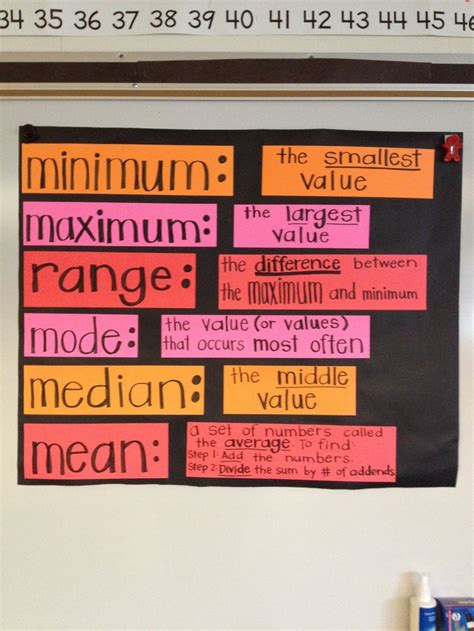 34 35 36 37 38 39 40 41 42 43 44 45 46
minimum: the smallest
value
maximum: the largest
value
range: the difference between
the maximum and minimum
mode: the value (or values)
that occurs most often
median: the middle
value
mean: a set of numbers called
the average. To find:
Step 1: Add the numbers.
Step 2: Divide the sum by # of addends